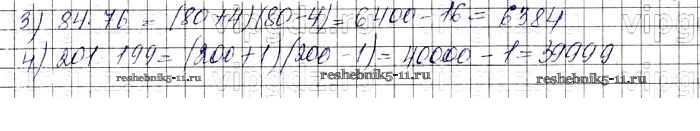 3) 84 · 76 = (80 + 4)(80 - 4) = 6400 - 16 = 6384
4) 201 199 = (200 + 1)(200 - 1) = 40000 - 1 = 39999
reshebnik5-11.ru reshebnik5-11.ru